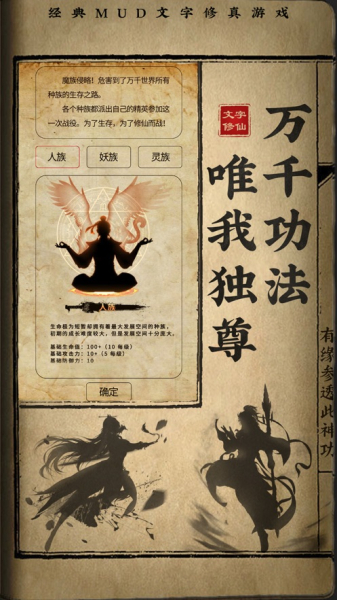 经典MUD文字修真游戏
魔族侵略！危害到了万千世界所有
种族的生存之路。
各个种族都派出自己的精英参加这
一次战役。为了生存，为了修仙而战！
人族
妖族
灵族
人族
生命极为短暂却拥有着最大发展空间的种族，
初期的成长难度较大，但是发展空间十分庞大。
基础生命值：100+（10 每级）
基础攻击力：10+（5 每级）
基础防御力：10
确定
文字
修仙
万千功法
唯我独尊
有缘参透此神功